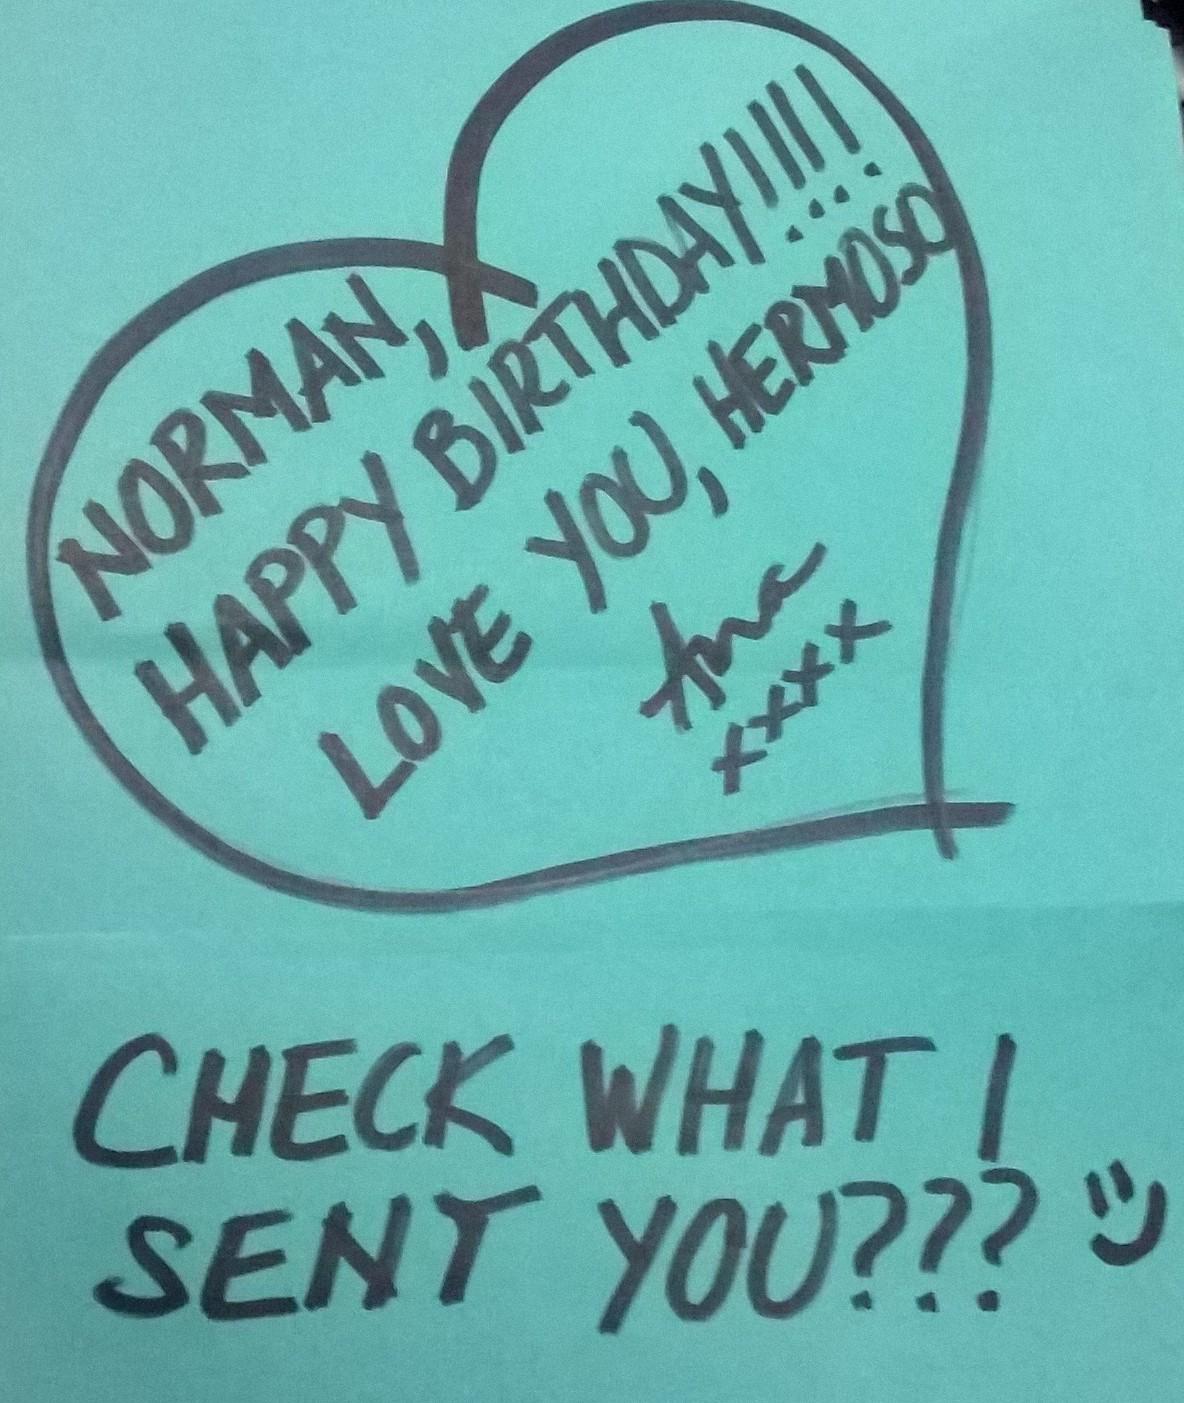 NORMAN,
HAPPY BIRTHDAY!!!!
LOVE YOU, HERMOSO
Ana
xxxx
CHECK WHAT I
SENT YOU???